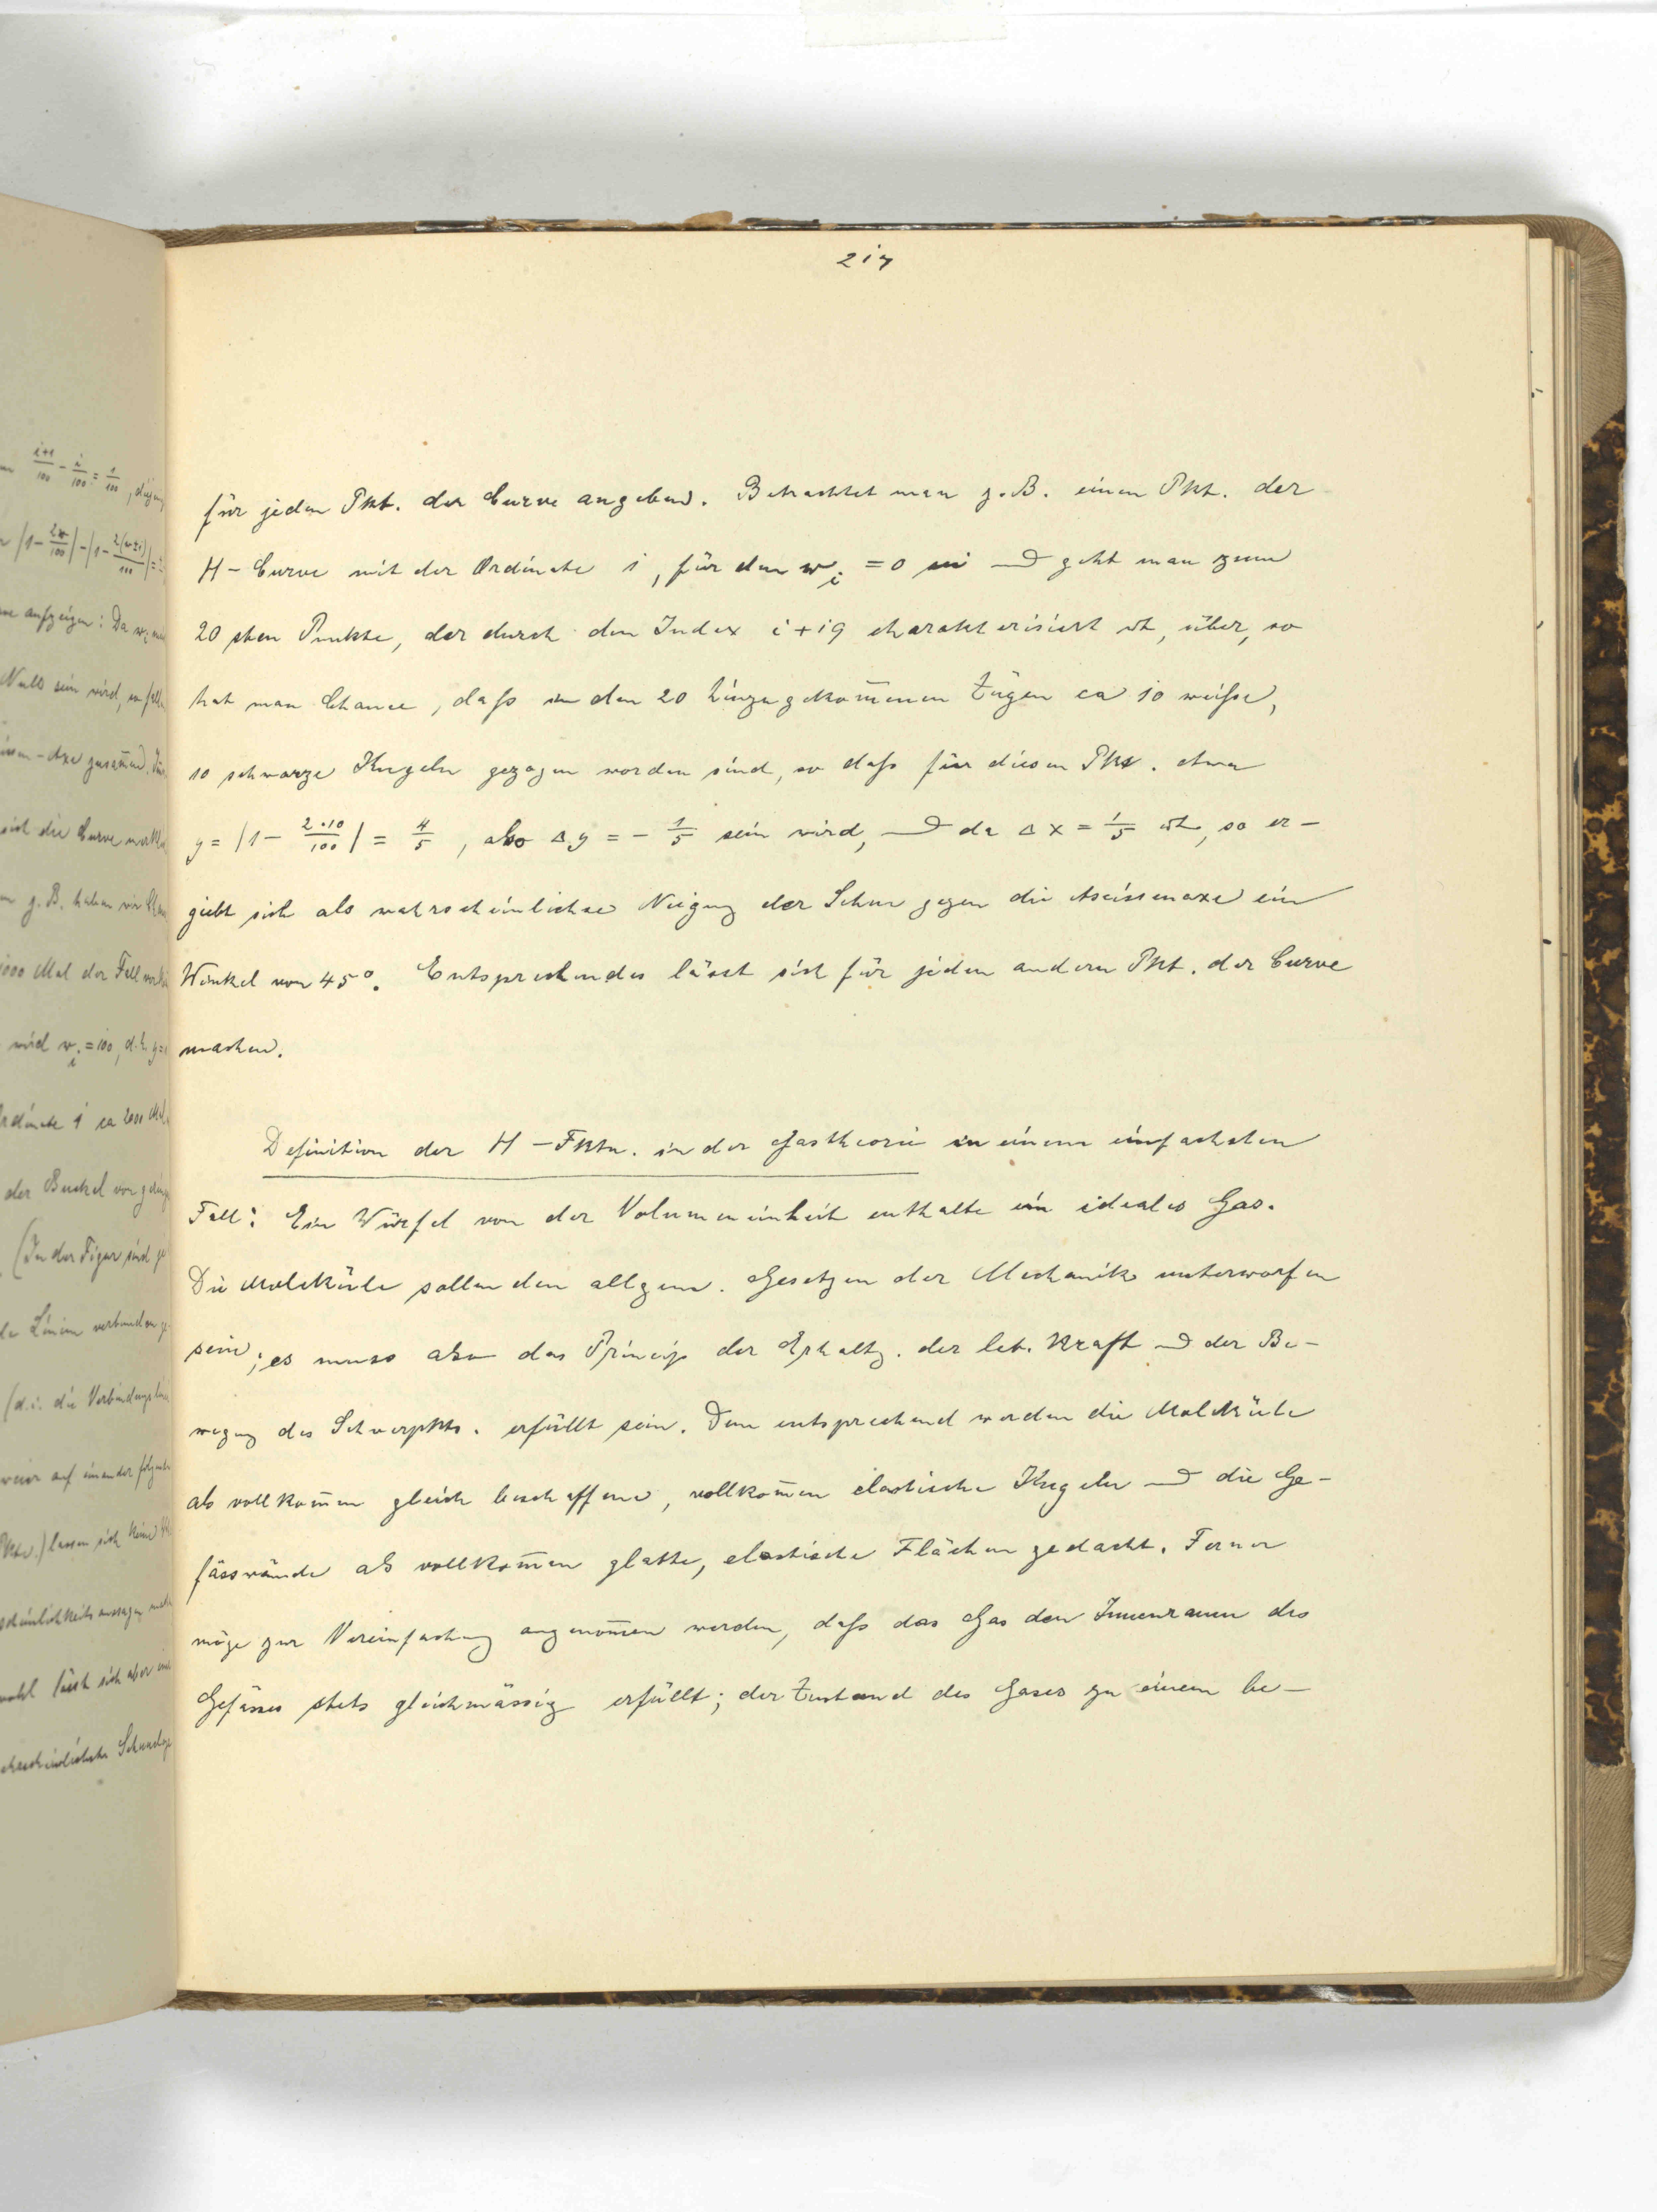 217
für jeden Pkt. der Curve angeben. Betrachtet man z. B. einen Pkt. der
H - Curve mit der Ordinate 1, für den w_i = 0 und geht man zum
20 sten Punkte, der durch den Index i + 19 charakterisiert ist, über, so
hat man Chance, daſs in den 20 hinzugekom̅enen Zügen ca 10 weiſse,
10 schwarze Kugeln gezogen worden sind, so daſs für diesen Pkt. etwa
y = |1 - 2·10/100| = 4/5, also Δy = - 1/5 sein wird, und da Δx = 1/5 ist, so er-
giebt sich als wahrscheinlichste Neigung der Sehne gegen die Abscissenaxe ein
Winkel von 45°. Entsprechendes lässt sich für jeden andern Pkt. der Curve
machen.
Definition der H - Fktn. in der Gastheorie in einem einfachsten
Fall: Ein Würfel von der Volumeneinheit enthalte ein ideales Gas.
Die Moleküle sollen den allgem. Gesetzen der Mechanik unterworfen
sein; es muss also das Princip der Erhaltg. der leb. Kraft und der Be-
wegung des Schwerpkts. erfüllt sein. Dem entsprechend werden die Moleküle
als vollkom̅en gleich beschaffene, vollkom̅en elastische Kugeln und die Ge-
fässwände als vollkom̅en glatte, elastische Flächen gedacht. Ferner
möge zur Vereinfachung angenom̅en werden, daſs das Gas den Innenraum des
Gefässes stets gleichmässig erfüllt; der Zustand des Gases zu einem be-